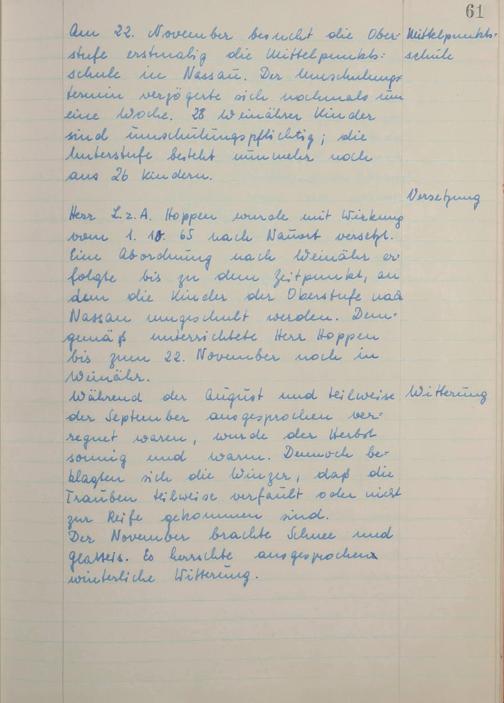 61
Am 22. November besucht die Ober-
stufe erstmalig die Mittelpunkts-
schule in Nassau. Der Umschulungs-
termin verzögerte sich nochmals um
eine Woche. 28 Weinährer Kinder
sind umschulungspflichtig; die
Unterstufe besteht nunmehr noch
aus 26 Kindern.
Mittelpunkts-
schule
Herr L.z.A. Hoppen wurde mit Wirkung
vom 1. 10. 65 nach Nauort versetzt.
Eine Abordnung nach Weinähr er
folgte bis zu dem Zeitpunkt, an
dem die Kinder der Oberstufe nach
Nassau umgeschult werden. Dem-
gemäß unterrichtete Herr Hoppen
bis zum 22. November noch in
Weinähr.
Versetzung
Während der August und teilweise
der September ausgesprochen ver-
regnet waren, wurde der Herbst
sonnig und warm. Dennoch be-
klagten sich die Winzer, daß die
Trauben teilweise verfault oder nicht
zur Reife gekommen sind.
Der November brachte Schnee und
Glatteis. Es herrschte ausgesprochen
winterliche Witterung.
Witterung